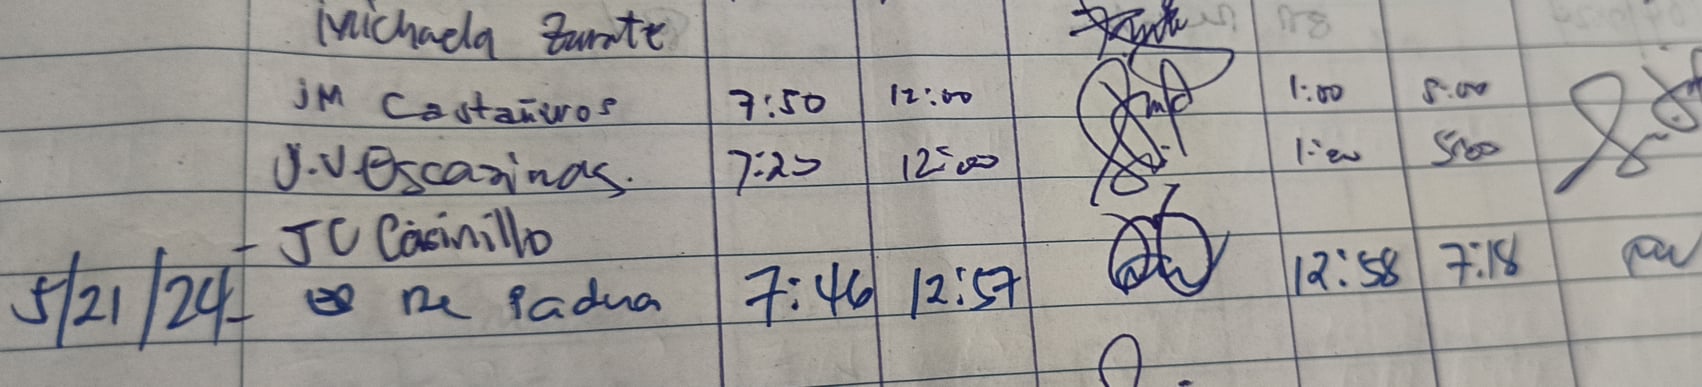 Michaela Zurate
JM Castañeros 7:50 12:00 1:00 5:00
J.V. Escarinas. 7:20 12:00 1:00 5:00
- JC Casinillo
5/21/24 - De Padua 7:46 12:57 12:58 7:18